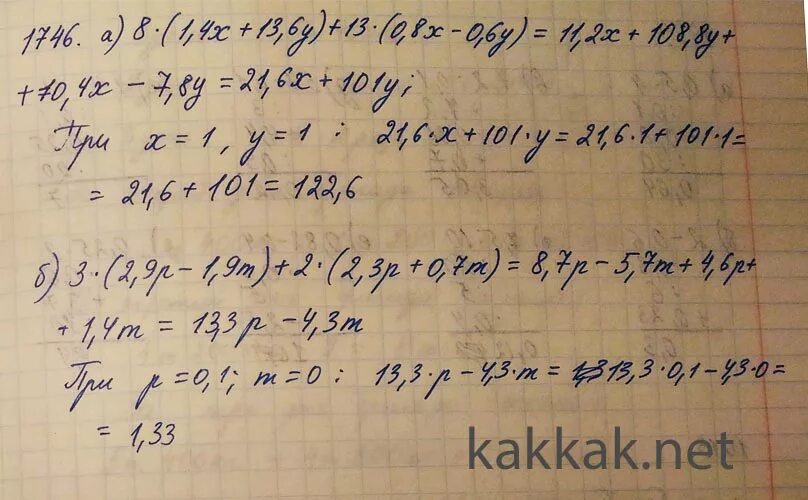 1746. а) 8·(1,4x+13,6y)+13·(0,8x-0,6y)=11,2x+108,8y+
+10,4x-7,8y=21,6x+101y;
При x=1, y=1 : 21,6·x+101·y=21,6·1+101·1=
=21,6+101=122,6
б) 3·(2,9p-1,9m)+2·(2,3p+0,7m)=8,7p-5,7m+4,6p+
+1,4m=13,3p-4,3m
При p=0,1; m=0 : 13,3·p-4,3·m=13,3·0,1-4,3·0=
=1,33
kakkak.net